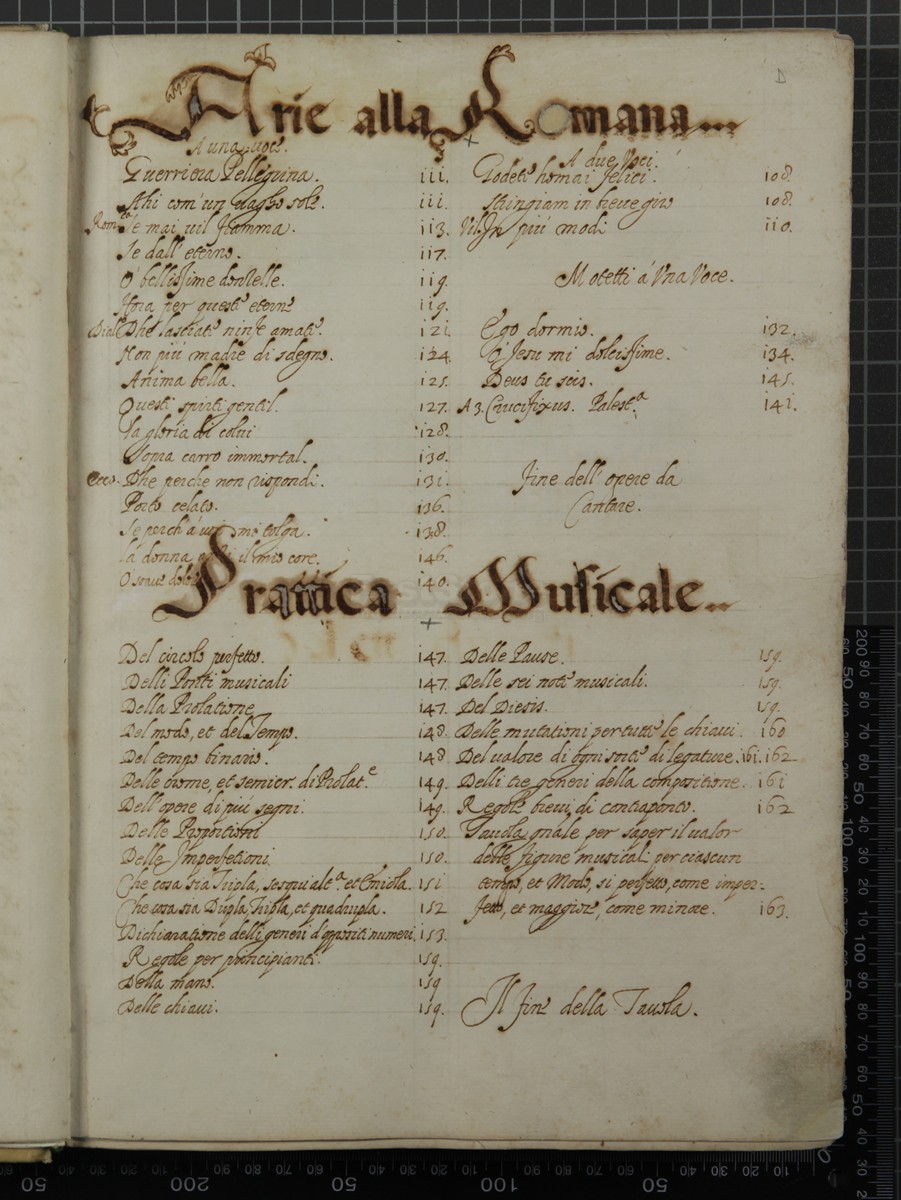 D
Arie alla Romana
A una voce.
Guerriera Pellegrina. 111.
Ahi com'un vagho sole. 111.
Se mai vil fiamma. 113.
Se dall' eterno. 117.
O' bellissime donzelle. 119.
Hora per questi eterne 119.
Dhe lasciate ninfe amate. 121
Non più madre di sdegno. 124
Anima bella. 125.
Questi spirti gentil. 127.
La gloria di colui 128.
Sopra carro immortal. 130.
Ecco. Dhe perche non rispondi. 131.
Porto celato. 136.
Se perch' a mi tolga. 138.
La donna il mio core. 146.
O soave dol 140.
A due Voci.
Godete homai felici. 108.
Stringiam in breve giro 108.
Vil. In più modi 110.
Motetti à Vna Voce.
Ego dormio. 132.
O' Jesu mi dolcissime. 134.
Deus tu scis. 145.
A 3. Crucifixus. Palest.a 141.
fine dell' opere da
Cantare.
Prattica Musicale
Del circolo perfetto. 147.
Delli Ponti musicali 147.
Della Prolatione 147.
Del modo, et del Tempo. 148.
Del tempo binario. 148
Delle crome, et semicr. di Prolat.e 149.
Dell' opere di più segni. 149.
Delle Proportioni 150.
Delle Imperfetioni. 150.
Che cosa sia Tripla, sesquialt.a et Emiola. 151
Che cosa sia Dupla, Tripla, et quadrupla. 152
Dichiaratione delli generi d'oppositi numeri. 153.
Regole per principianti. 159.
Della mano. 159
Delle chiavi. 159.
Delle Pause. 159.
Delle sei note musicali. 159.
Del Diesis. 159.
Delle mutationi per tutte le chiavi. 160
Del valore di ogni sorte di legature. 161. 162
Delli tre generi della compositione. 161
Regole brevi, di contraponto. 162
Tavola gnale per saper il valor
delle figure musicali per ciascun
tempo, et Modo, si perfetto, come imper-
fetto, et maggiore, come minore. 163.
Il fine della Tavola.